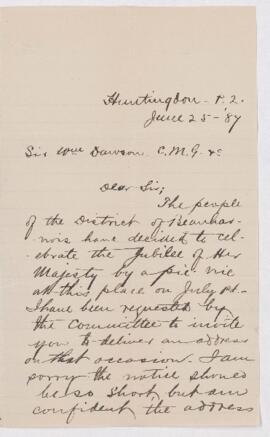 Huntingdon P.2.
June 25-'87
Sir Wm Dawson C.M.G. &c
Dear Sir;
The people
of the District of Beauhar-
nois have decided to cel-
ebrate the Jubilee of Her
Majesty by a pic nic
at this place on July 1st.
I have been requested by
the Committee to invite
you to deliver an address
on that occasion. I am
sorry the notice should
be so short, but am
confident the address